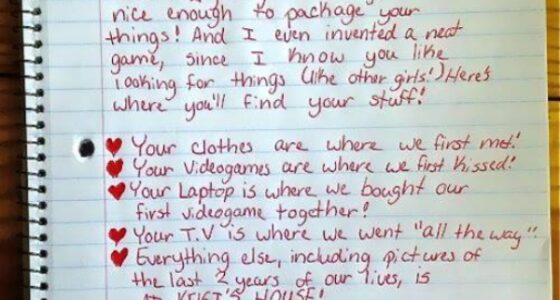 nice enough to package your
things! And I even invented a neat
game, since I know you like
looking for things (like other girls!) Here's
where you'll find your stuff!
Your clothes are where we first met!
Your videogames are where we first kissed!
Your Laptop is where we bought our
first videogame together!
Your T.V is where we went "all the way".
Everything else, including pictures of
the last 2 years of our lives, is
KRISTI'S HOUSE!